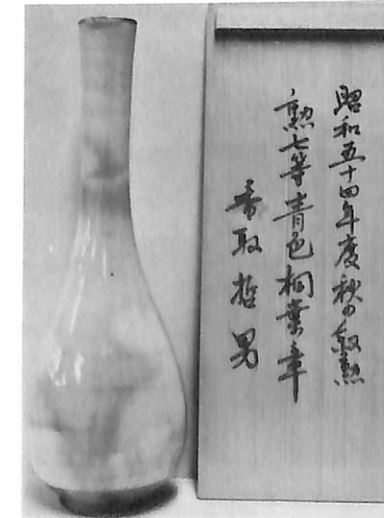 昭和五十四年度秋の叙勲
勲七等青色桐葉章
香取哲男